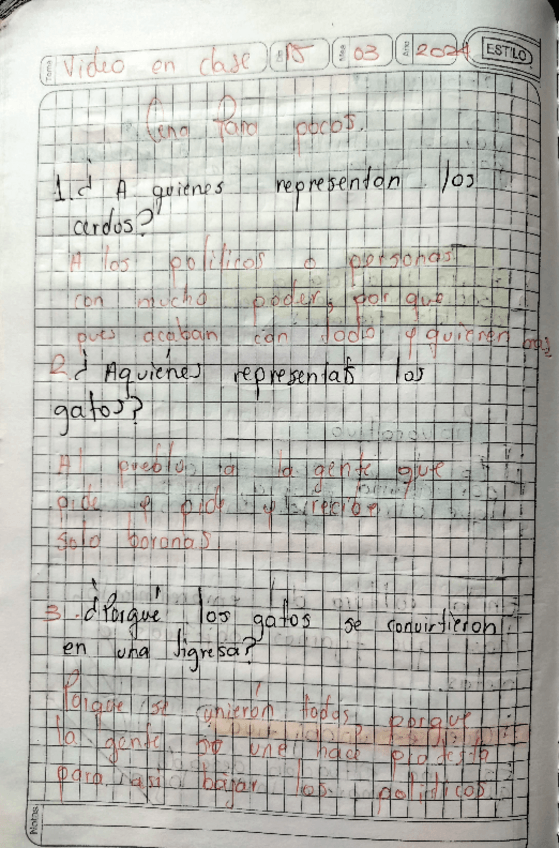 Tema Video en clase Día 15 Mes 03 Año 2024 ESTILO
Cena Para pocos.
1.¿ A quienes representan los
cerdos?
A los politicos o personas
con mucho poder, por que
pues acaban con todo y quieren mas
2.¿ Aquiénes representas los
gatos?
Al pueblo, a la gente que
pide y pide y recibe
solo boronas
3.¿Porqué los gatos se convirtieron
en una tigresa?
Porque se unieron todos, porque
la gente se une hace protesta
para asi bajar los politicos
Notas